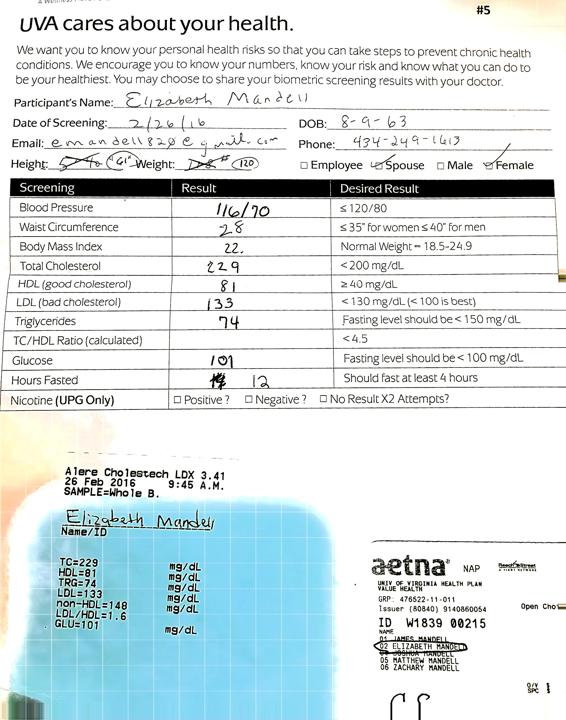 #5
UVA cares about your health.
We want you to know your personal health risks so that you can take steps to prevent chronic health
conditions. We encourage you to know your numbers, know your risk and know what you can do to
be your healthiest. You may choose to share your biometric screening results with your doctor.
Participant's Name: Elizabeth Mandell
Date of Screening: 2/26/16 DOB: 8-9-63
Email: emandell820@gmail.com Phone: 434-249-1613
Height: "61" Weight: 120 □ Employee ☑ Spouse □ Male ☑ Female
Screening Result Desired Result
Blood Pressure 116/70 ≤ 120/80
Waist Circumference 28 ≤ 35" for women ≤ 40" for men
Body Mass Index 22. Normal Weight = 18.5-24.9
Total Cholesterol 229 < 200 mg/dL
HDL (good cholesterol) 81 ≥ 40 mg/dL
LDL (bad cholesterol) 133 < 130 mg/dL (< 100 is best)
Triglycerides 74 Fasting level should be < 150 mg/dL
TC/HDL Ratio (calculated) < 4.5
Glucose 101 Fasting level should be < 100 mg/dL
Hours Fasted 12 Should fast at least 4 hours
Nicotine (UPG Only) □ Positive? □ Negative? □ No Result X2 Attempts?
Alere Cholestech LDX 3.41
26 Feb 2016 9:45 A.M.
SAMPLE=Whole B.
Elizabeth Mandell
Name/ID
TC=229 mg/dL
HDL=81 mg/dL
TRG=74 mg/dL
LDL=133 mg/dL
non-HDL=148 mg/dL
LDL/HDL=1.6
GLU=101 mg/dL
aetna NAP
UNIV OF VIRGINIA HEALTH PLAN
VALUE HEALTH
GRP: 476522-11-011
Issuer (80840) 9140860054 Open Cho
ID W1839 00215
NAME
01 JAMES MANDELL
02 ELIZABETH MANDELL
JOSHUA MANDELL
05 MATTHEW MANDELL
06 ZACHARY MANDELL
O/V
SPC